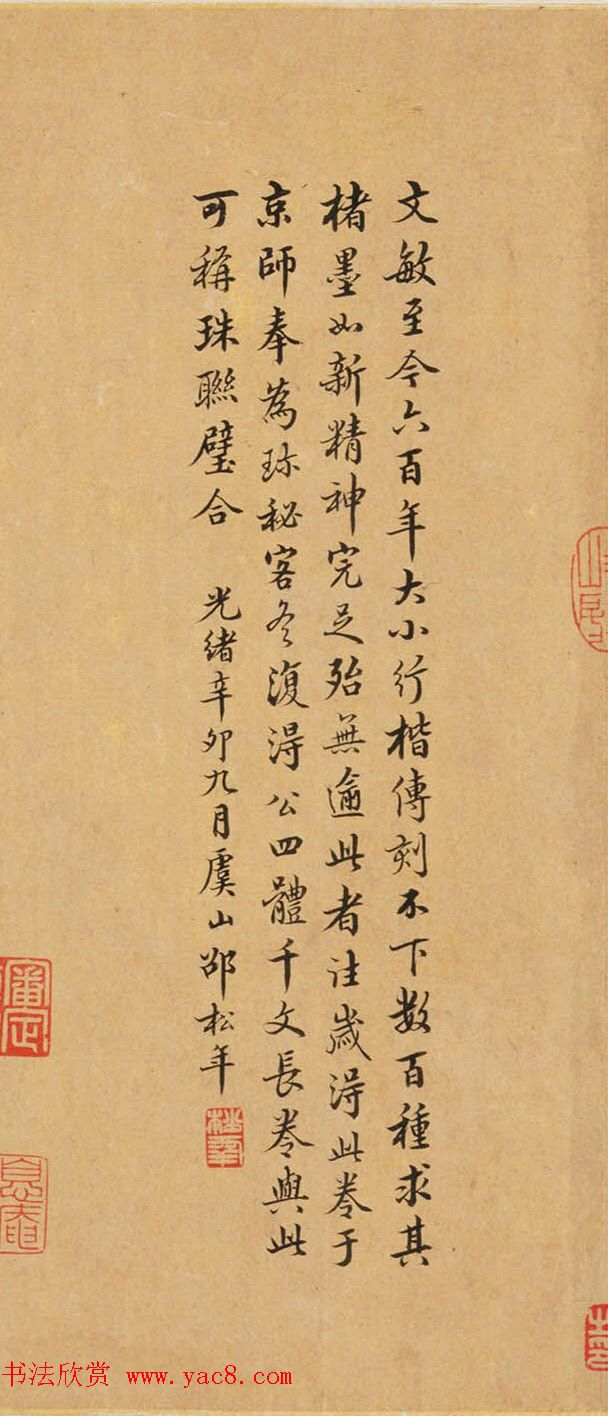 文敏至今六百年大小行楷傳刻不下數百種求其
楮墨如新精神完足殆無逾此者往歲得此卷于
京師奉為珎秘客冬復得公四體千文長卷與此
可稱珠聯璧合 光緒辛卯九月虞山邵松年
松年
審定
息盦
书法欣赏 www.yac8.com